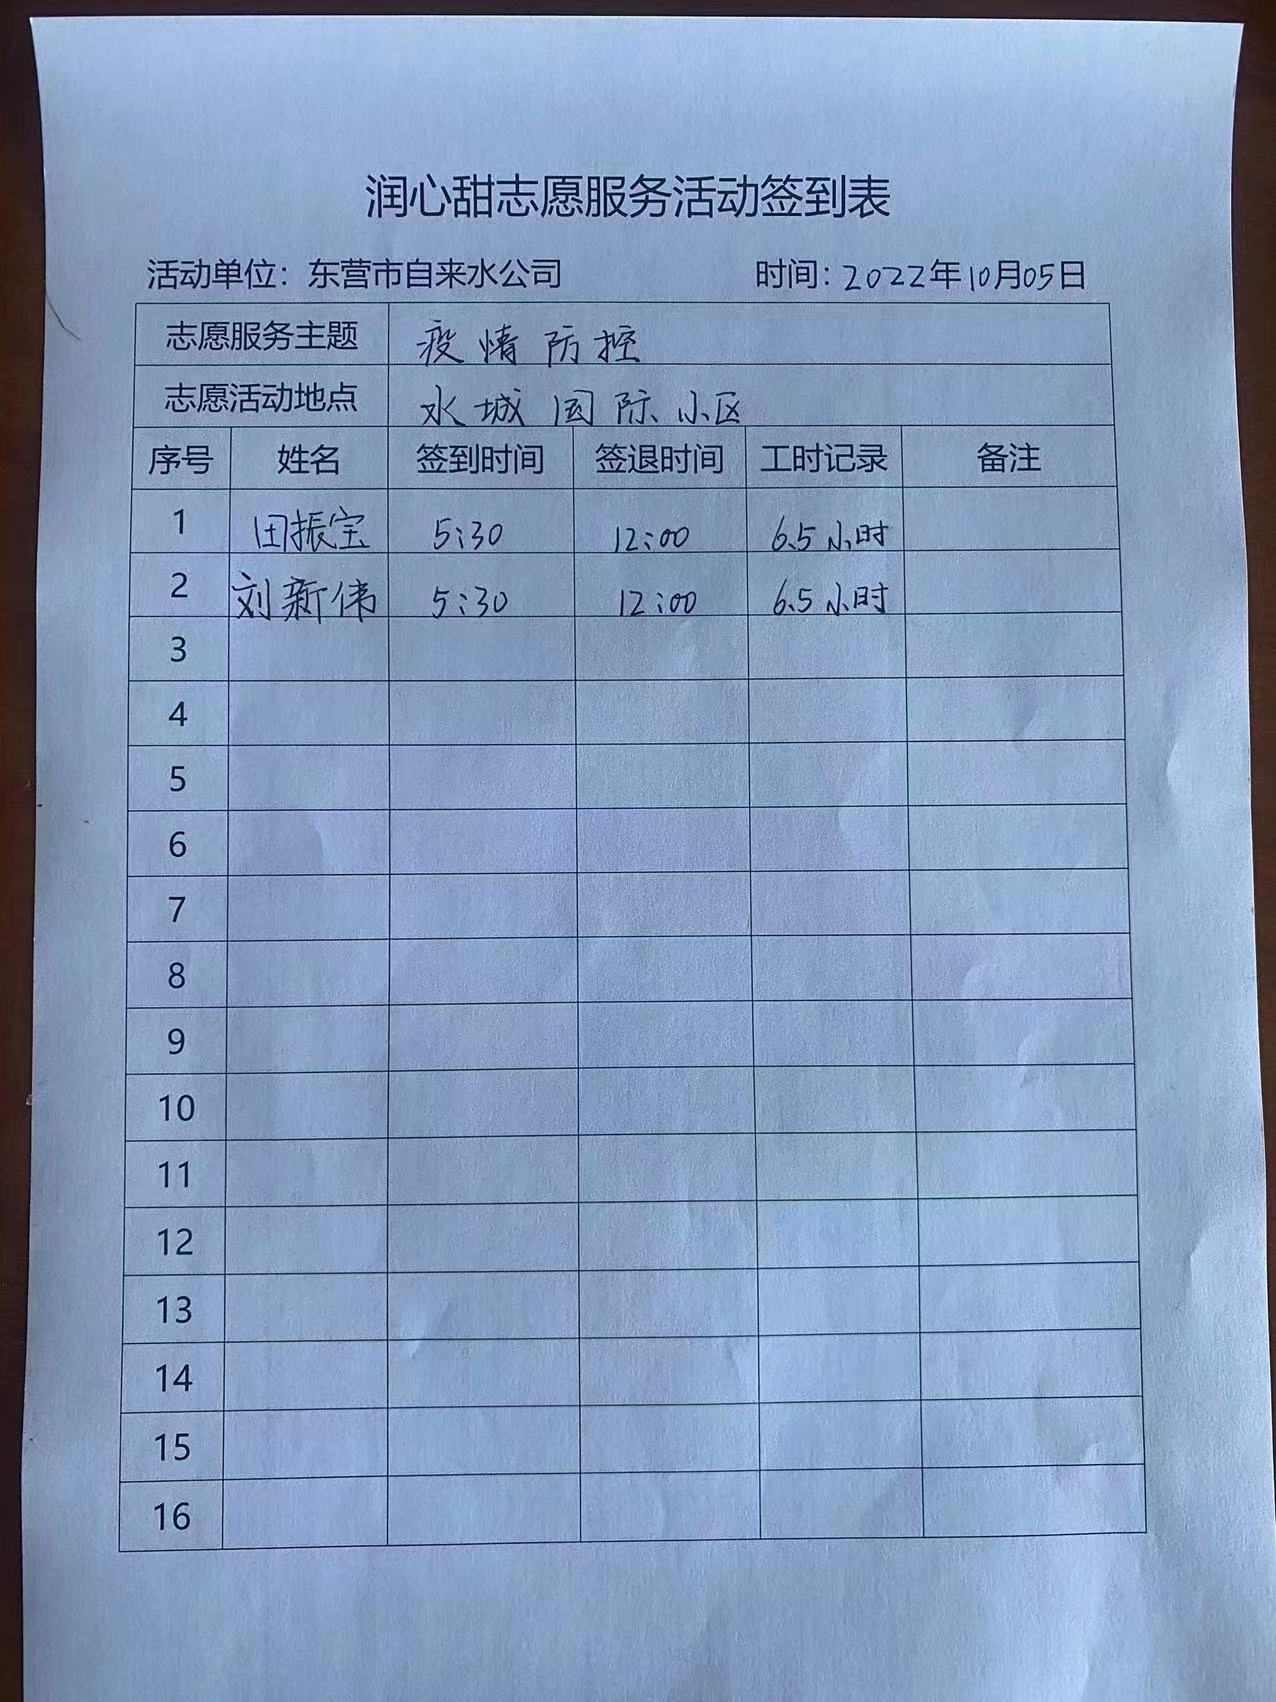 润心甜志愿服务活动签到表
活动单位：东营市自来水公司 时间：2022年10月05日
志愿服务主题 疫情防控
志愿活动地点 水城国际小区
序号 姓名 签到时间 签退时间 工时记录 备注
1 田振宝 5:30 12:00 6.5小时
2 刘新伟 5:30 12:00 6.5小时
3
4
5
6
7
8
9
10
11
12
13
14
15
16